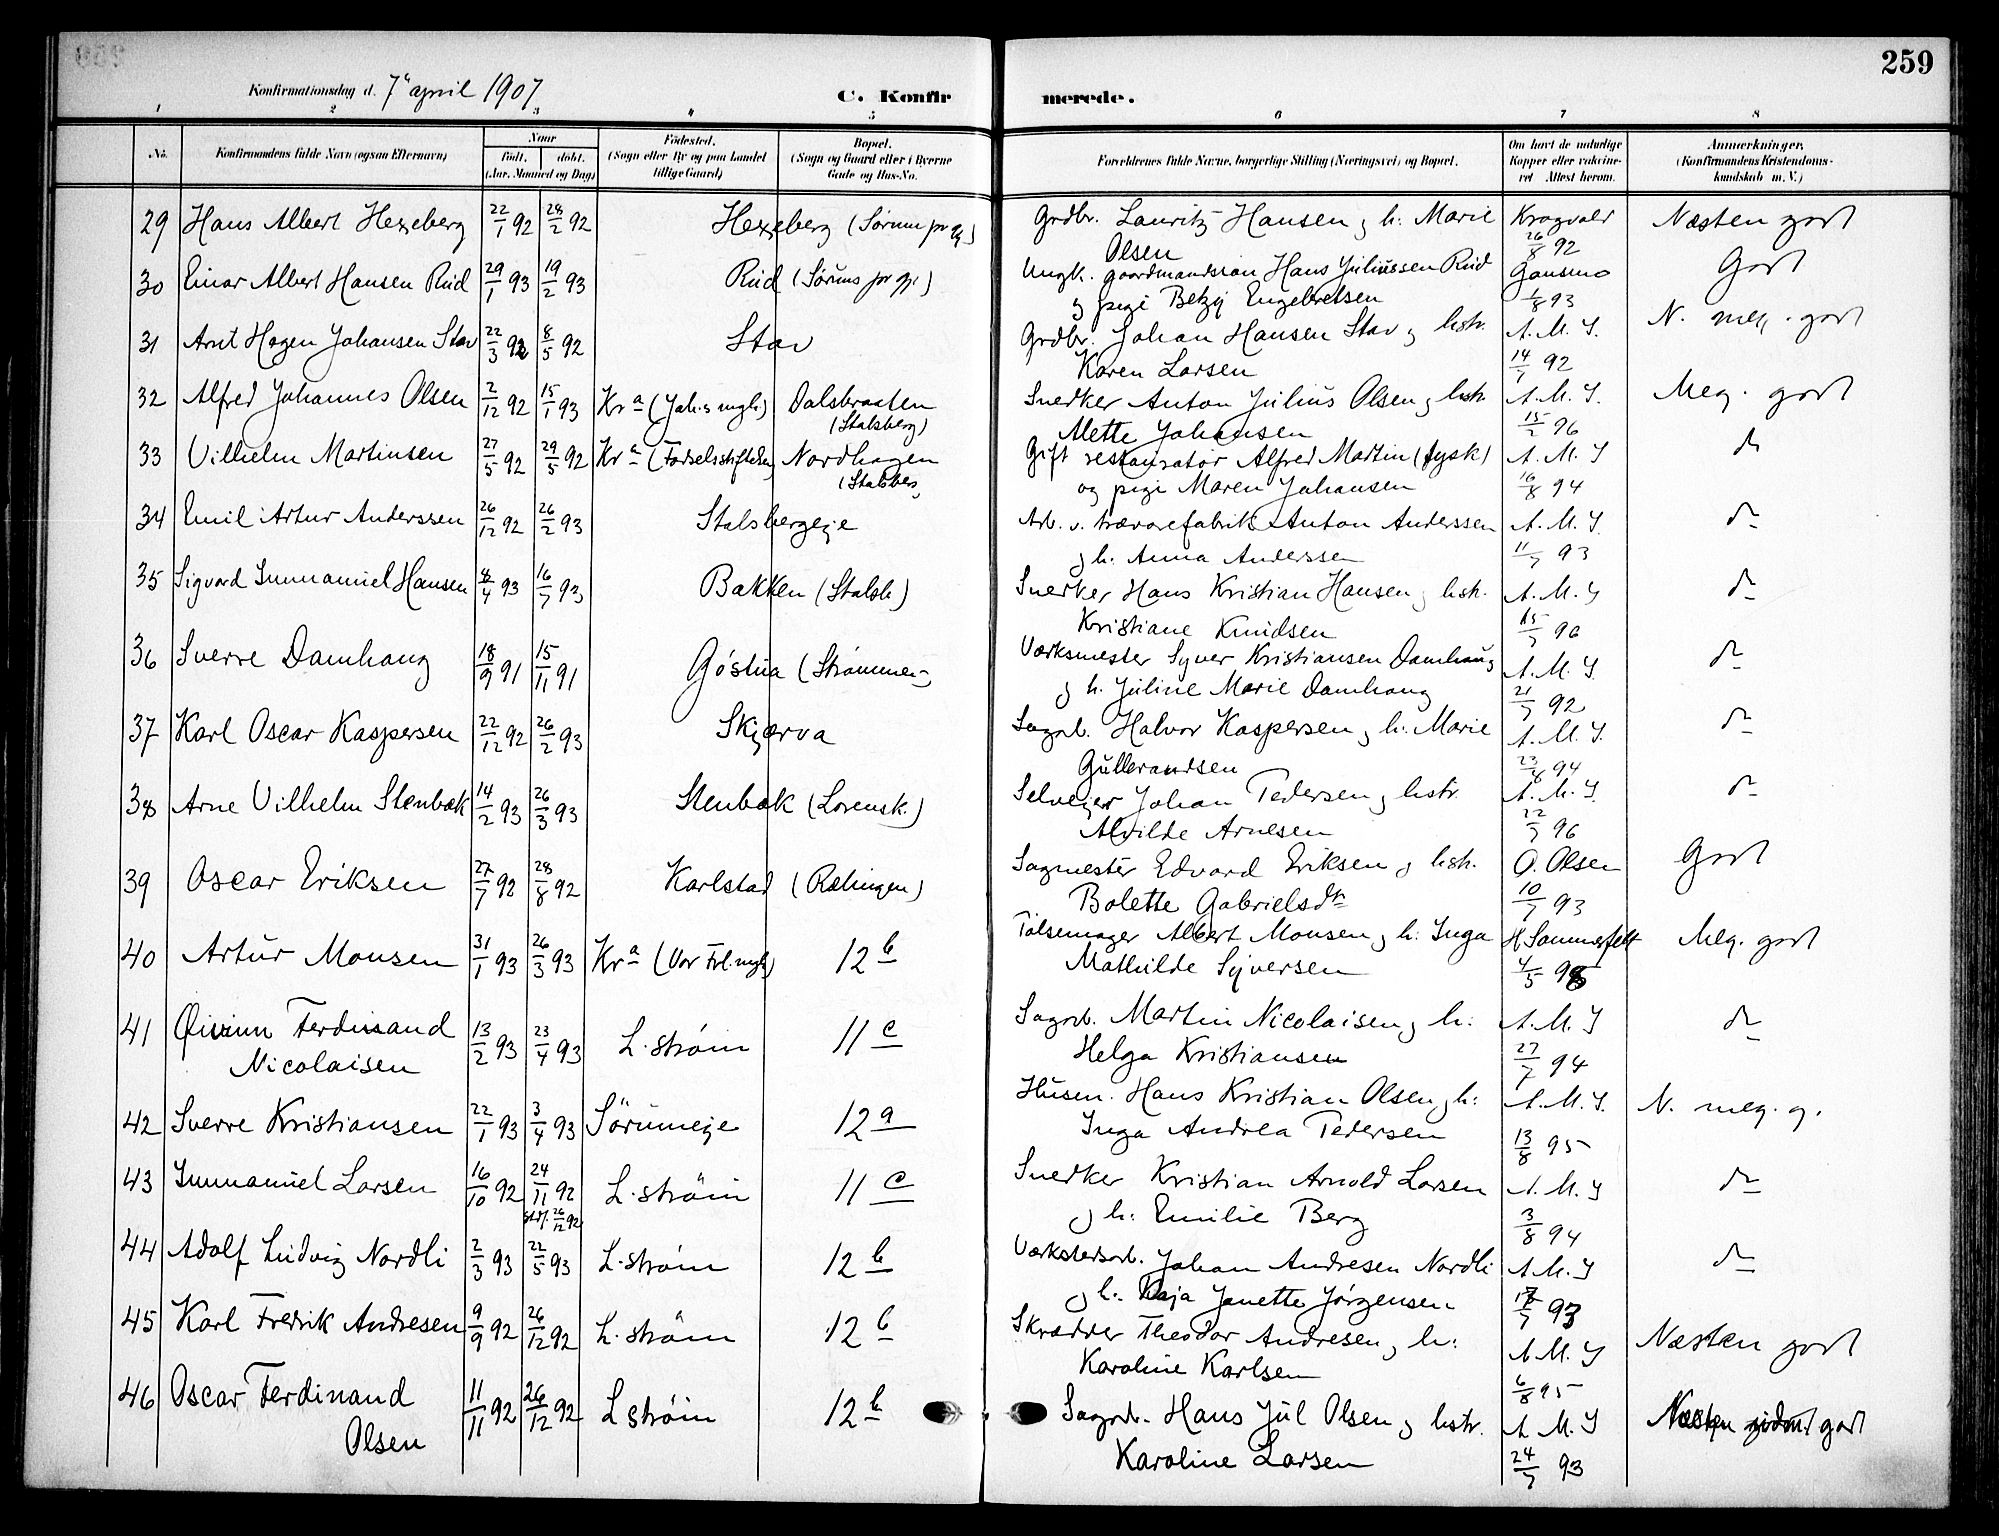 259
Konfirmationsdag d. 7de april 1907
C. Konfirmerede.
1 2 3 4 5 6 7 8
No. Konfirmandens fulde Navn (ogsaa Efternavn) Naar født. døbt. (Aar, Maaned og Dag) Fødested. (Sogn eller By og paa Landet tillige Gaard) Bopæl. (Sogn og Gaard eller i Byerne Gade og Hus-No. Forældrenes fulde Navne, borgerlige Stilling (Næringsvei) og Bopæl. Om havt de naturlige Kopper eller vaksineret Attest herom. Anmerkninger. (Konfirmandens Kristendomskundskab m. V.)
29 Hans Albert Hexeberg 22/1 92 28/2 92 Hexeberg (Sørum pr gj) Grdbr. Lauritz Hansen og h: Marie Krogvold Næsten godt
Olsen 26/8 92
30 Einar Albert Hansen Rud 29/1 93 19/2 93 Rud (Sørums pr gj.) Ungk. gaardmandssøn Hans Juliussen Rud Gausmo Godt
og pige Betzy Engebretsen 1/8 93
31 Arnt Hagen Johansen Stav 22/3 92 8/5 92 Stav Grdbr. Johan Hansen Stav og hstr. A. M. S. N. meg. godt
Karen Larsen 14/7 92
32 Alfred Johannes Olsen 2/12 92 15/1 93 Kra (Joh.s mgh.) Dalsbraaten (Stalsberg) Snedker Anton Julius Olsen og hstr. A. M. S. Meg. godt
Mette Johansen 15/2 96
33 Vilhelm Martinsen 27/5 92 29/5 92 Kra (Fødselsstiftelsen) Nordhagen (Stalsberg) Gift restauratør Alfred Martin (tysk) A. M. S do
og pige Maren Johansen 16/8 94
34 Emil Artur Anderssen 26/12 92 26/2 93 Stalsbergeje Arb. v. trævarefabrik Anton Anderssen A. M. S do
og h. Anna Anderssen 11/7 93
35 Sigvard Immanuel Hansen 8/4 93 16/7 93 Bakken (Stalsb.) Snedker Hans Kristian Hansen og hstr. A. M. S do
Kristiane Knudsen 15/7 96
36 Sverre Damhaug 18/9 91 15/11 91 Gøstua (Strømmen) Værksmester Syver Kristiansen Damhaug A. M. S. do
og h. Juline Marie Damhaug 21/7 92
37 Karl Oscar Kaspersen 22/12 92 26/2 93 Skjærva Sagarb. Halvor Kaspersen og h: Marie A. M. S. do
Gulbrandsen 23/8 94
38 Arne Vilhelm Stenbæk 14/2 93 26/3 93 Stenbæk (Lørensk.) Selvejer Johan Pedersen og hstr. A. M. S. do
Alvilde Arnesen 22/7 96
39 Oscar Eriksen 27/7 92 28/8 92 Karlstad (Rælingen) Sagmester Edvard Eriksen og hstr. O. Olsen Godt
Bolette Gabrielsdr 10/7 93
40 Artur Monsen 31/1 93 26/3 93 Kra (Vor Frl. mgh) 12 b Pølsemager Albert Monsen og h: Inga H Sommerfelt Meg. godt
Mathilde Syversen 4/5 98
41 Øivinn Ferdinand 13/2 93 23/4 93 L.strøm 11 c Sagarb. Martin Nicolaisen og h: A. M. S do
Nicolaisen Helga Kristiansen 27/7 94
42 Sverre Kristiansen 22/1 93 3/4 93 Sørumeje 12 a Husm. Hans Kristian Olsen og h: A. M. S. N. meg. g.
Inga Andrea Pedersen 13/8 95
43 Immanuel Larsen 16/10 92 24/11 92 L.strøm 11 c Snedker Kristian Arnold Larsen A. M. S do
26/12 92 og h: Emilie Berg 3/8 94
44 Adolf Ludvig Nordli 2/3 93 22/5 93 L.strøm 12 b Værkstedsarb. Johan Andresen Nordli A. M. S do
og h: Kaja Janette Jørgensen 93
45 Karl Fredrik Andresen 9/9 92 26/12 92 L.strøm 12 b Skrædder Theodor Andresen og h: A. M. S Næsten godt
Karoline Karlsen 6/8 95
46 Oscar Ferdinand 11/11 92 26/12 92 L strøm 12 b Sagarb. Hans Jul Olsen og hstr. A. M. S Næsten godt
Olsen Karoline Larsen 24/7 93